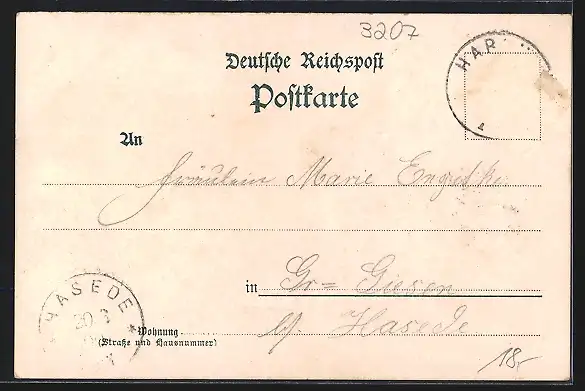 3207
Deutsche Reichspost
Postkarte
HAR
An
Fräulein Marie
in Gr= Giesen
b/ Hasede
HASEDE
20 3
Wohnung
(Straße und Hausnummer)
18,-